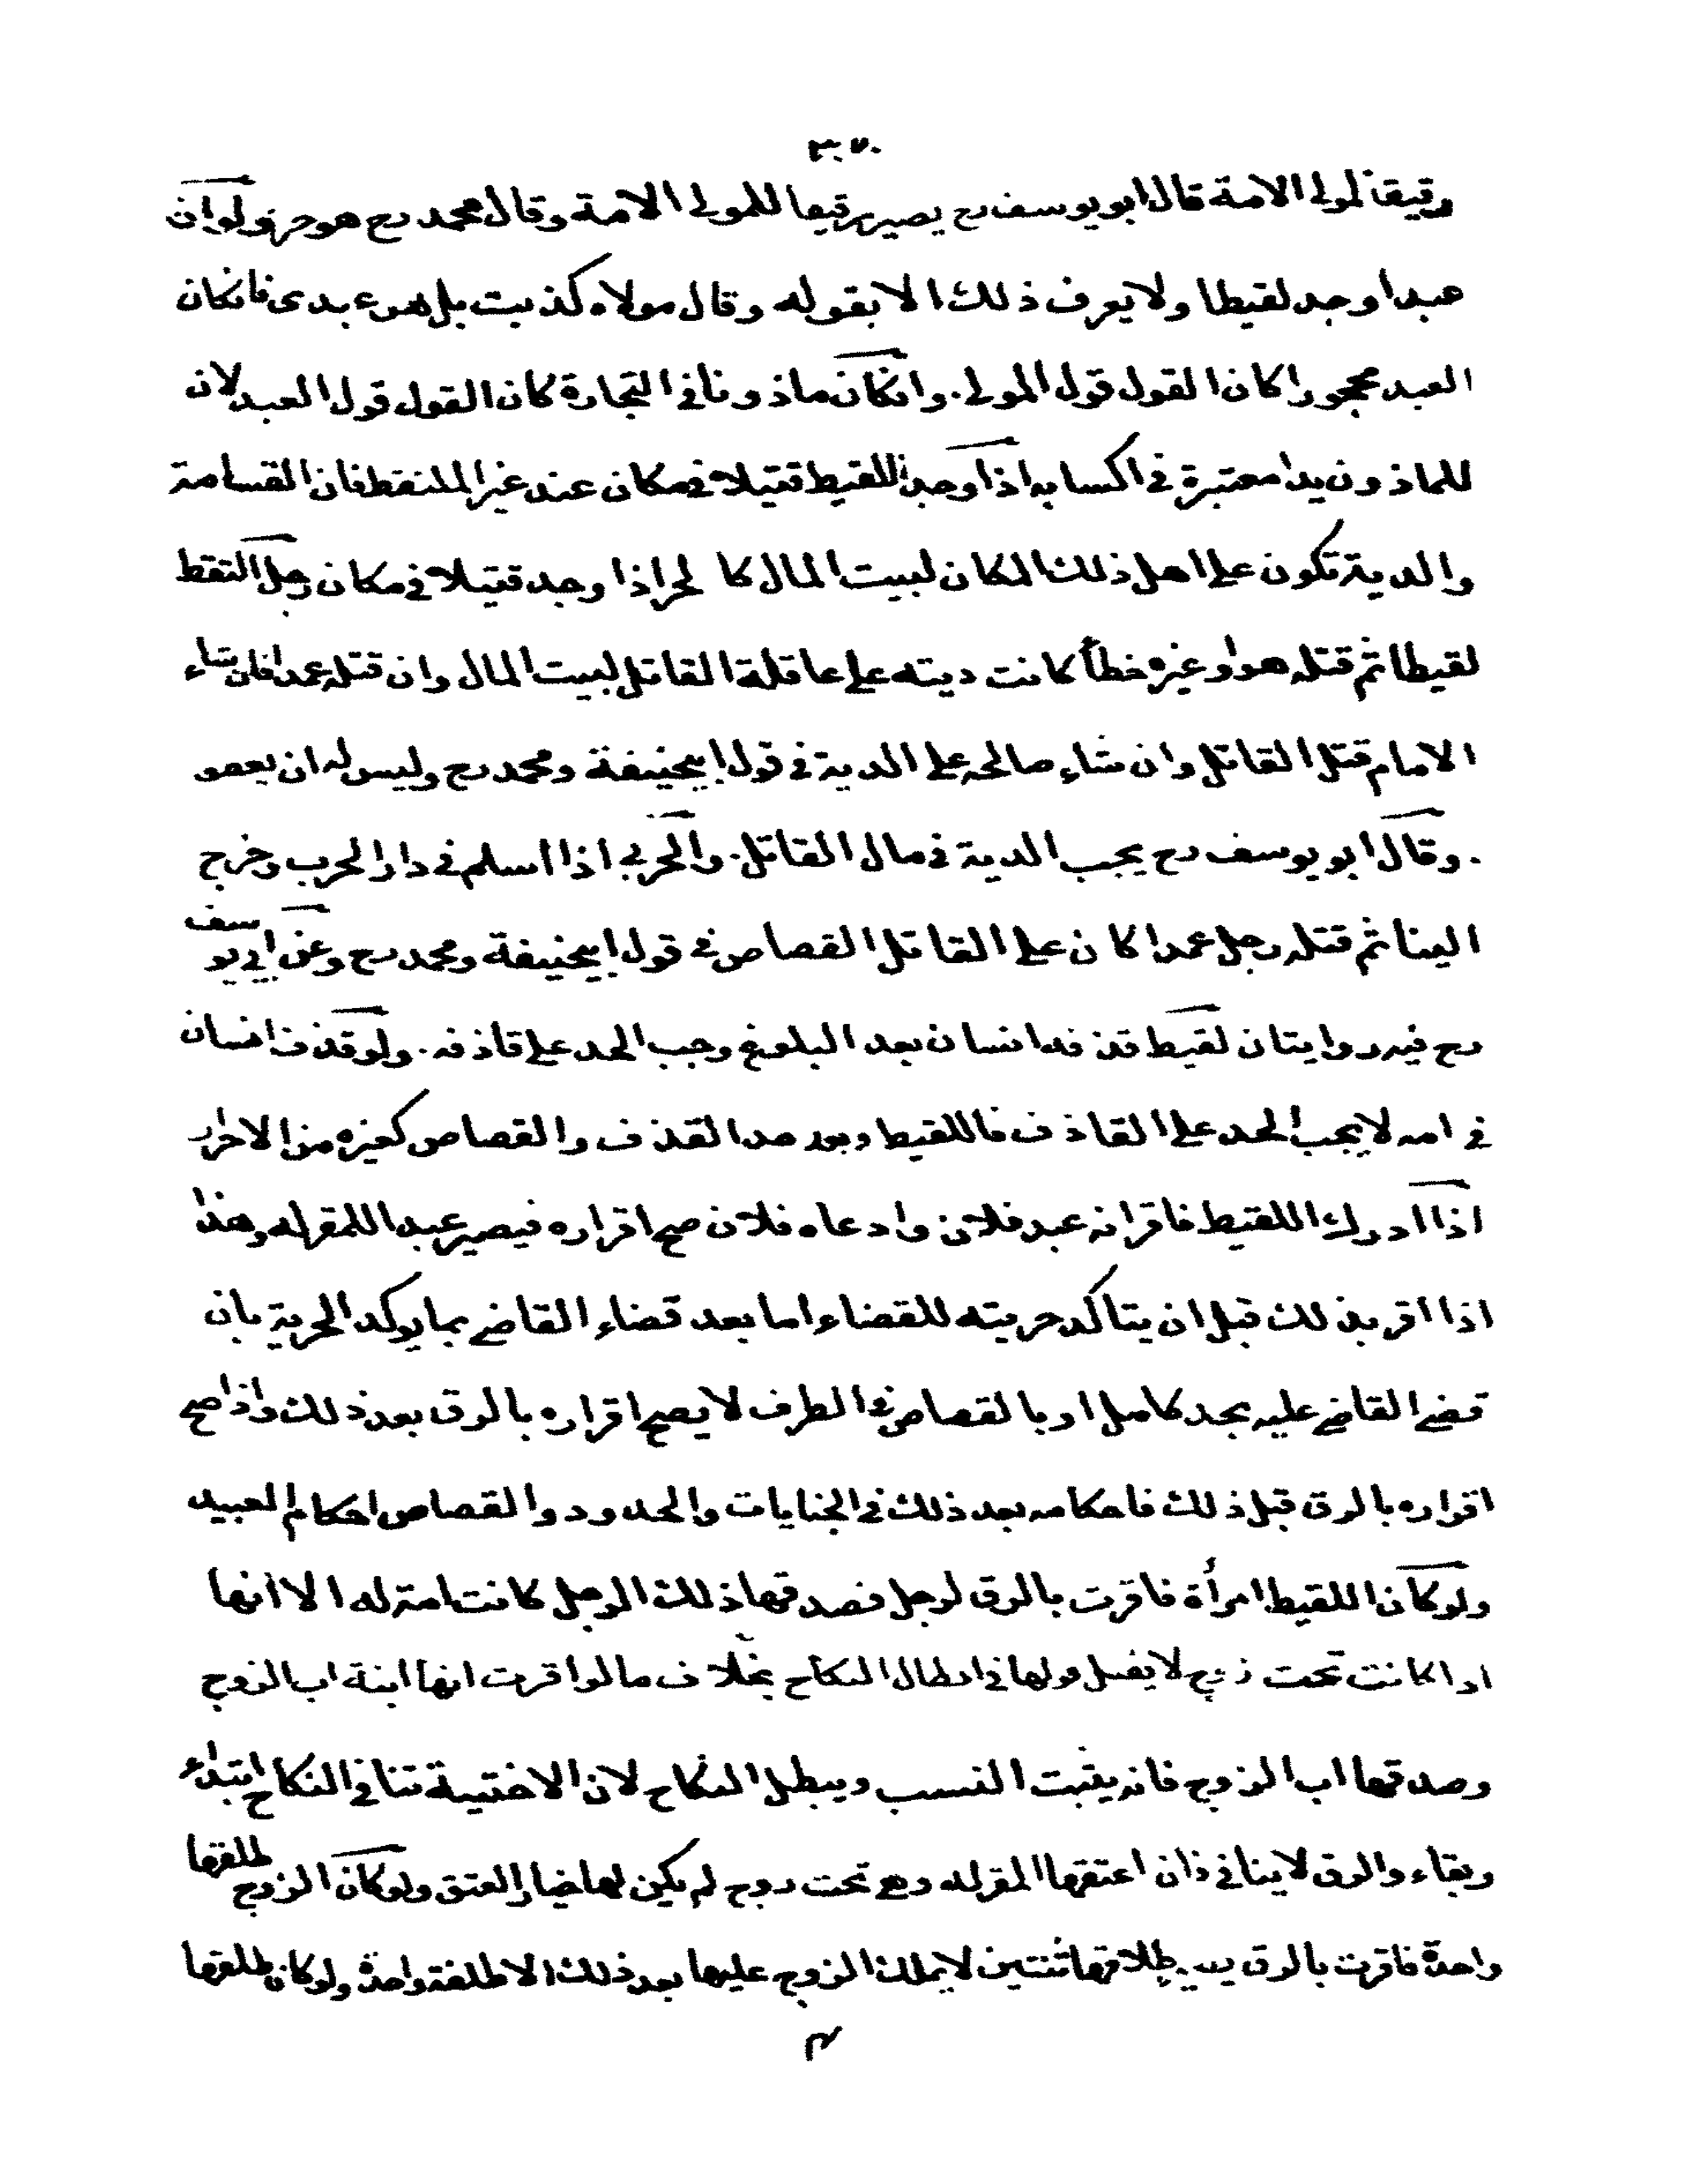 رقيقا لمولى الامة قال ابو يوسف رح يصير رقيقا للمولى الامة وقال محمد رح هو حر ولو ان
عبدا وجد لقيطا ولا يعرف ذلك الا بقوله وقال مولاه كذبت بل هو عبدى فانكان
العبد محجورا كان القول قول المولى. وانكان ماذونا في التجارة كان القول قول العبد لان
للماذون يدا معتبرة في اكسابه اذا وجد اللقيط قتيلا في مكان عند غير الملتقط فان القسامة
والدية تكون على اهل ذلك المكان لبيت المال كا لحر اذا وجد قتيلا في مكان رجل التقط
لقيطا ثم قتله هو او غيره خطأ كانت ديته على عاقلة القاتل لبيت المال وان قتله عمدا فان شاء
الامام قتل القاتل وان شاء صالحه على الدية في قول ابيحنيفة ومحمد رح وليس له ان يعفو
. وقال ابو يوسف رح يجب الدية في مال القاتل. والحربي اذا اسلم في دار الحرب وخرج
الينا ثم قتله رجل عمدا كان على القاتل القصاص في قول ابيحنيفة ومحمد رح وعن ابي يوسف
رح فيه روايتان لقيط قذفه انسان بعد البلوغ وجب الحد على قاذفه. ولو قذف انسان
في امه لا يجب الحد على القاذف فاللقيط وبعد هدا القذف والقصاص كغيره من الاحرار
اذا ادرك اللقيط فاقر انه عبد فلان وادعاه فلان صح اقراره فيصير عبدا للمقر له وهذا
اذا اقر بذلك قبل ان يتاكد حريته للقضاء اما بعد قضاء القاضى بما يوكد الحرية بان
قضى القاضى عليه بحد كامل او بالقصاص في الطرف لا يصح اقراره بالرق بعد ذلك واذا صح
اقراره بالرق قبل ذلك فاحكامه بعد ذلك في الجنايات والحدود والقصاص احكام العبيد
ولو كان اللقيط امرأة فاقرت بالرق لرجل فصدقها ذلك الرجل كانت امة له الا انها
اذا كانت تحت زوج لا يقبل قولها في ابطال النكاح بخلاف ما لو اقرت انها ابنة اب الزوج
وصدقها اب الزوج فانه يثبت النسب ويبطل النكاح لان الاختية تنافي النكاح ابتداء
وبقاء والرق لا ينافي ذان اعتقها المقر له وهى تحت زوج لم يكن لها خيار العتق ولو كان الزوج طلقها
واحدة فاقرت بالرق يصير طلاقها ثنتين لا يملك الزوج عليها بعد ذلك الا طلقة واحدة ولو كان طلقها